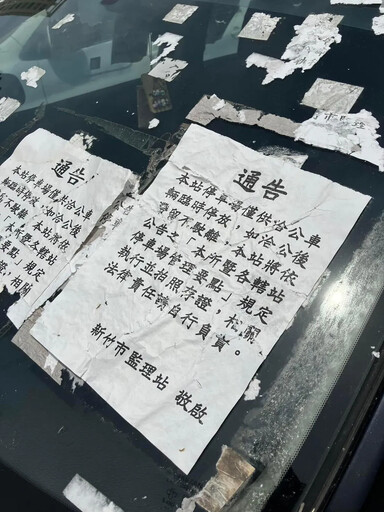 通告
本站停車場僅供洽公車
輛臨時停放,如洽公後
駛離,本站將依
「本所暨各轄站
要點」規定
相關
通告
本站停車場僅供洽公車
輛臨時停放,如洽公後
滯留不駛離,本站將依
公告之「本所暨各轄站
停車場管理要點」規定
執行並拍照存證,相關
法律責任請自行負責。
新竹市監理站 敬啟
市監理